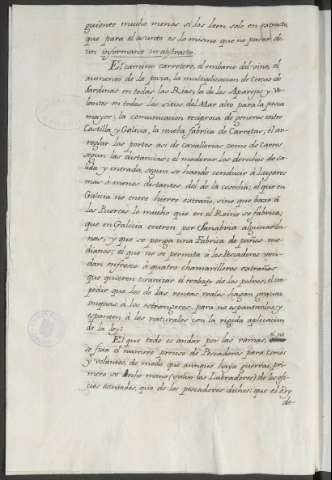 guiente mucho menos si las leen solo en extracto
que para el asunto es lo mismo que no pasar de
un informante un abstracto.
El camino carretero, el embarco del vino, el
aumento de la pesca, la multiplicacion de cercos de
Sardinas en todas las Rias, la de los Aparejos y vo-
lantes en todos los sitios del Mar alto para la pesca
mayor; la comunicacion reciproca de generos entre
Castilla y Galicia, la nueva fabrica de Carretas, el ar-
reglar los portes asi de cavallerias como de carros
segun las distancias; el moderar los derechos de sa-
lida y entrada, segun se hande conducir á lugares
mas ó menos distantes del de la cosecha; el que en
Galicia no entre hierro extraño, sino que baxe á
los Puertos lo mucho que en el Reino se fabrica;
que en Galicia entren por Sanabria algunas la-
nas, y que se ponga una Fabrica de paños me-
dianos; el que no se permita a los Pescadores ven-
dan en fresco a quatro chamarilleros extraños
que quieren tiranizar el trabajo de los pobres, el im-
pedir que los de las rentas reales hagan
á los estrangeros, para no espantarlos, y
estrujen á los naturales con la rigida aplicacion
de la ley;
El que todo es andar por las ramas, si no
se fixa el numero preciso de Pescadores para cercos
y volantes, de modo que aunque haya guerras, pri-
mero se heche mano (salvo los Labradores) de los ofi-
cios, que de los pescadores dichos; que el Rey
de